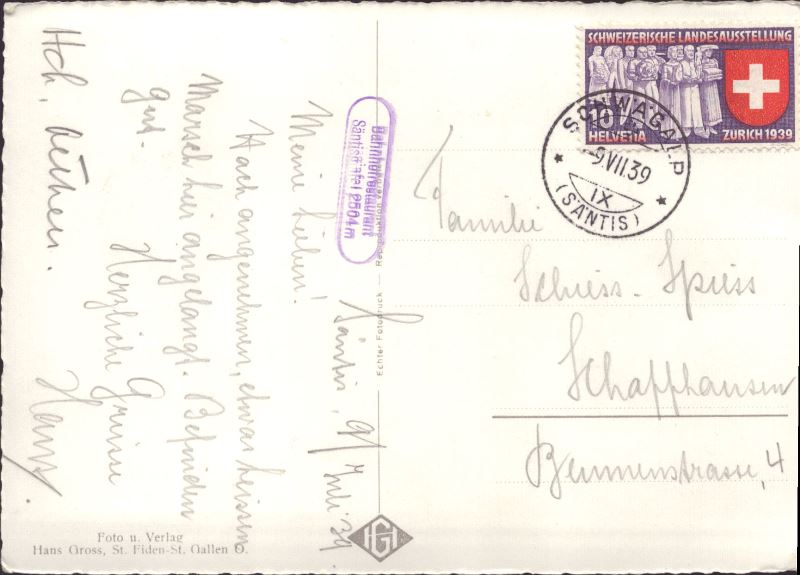 SCHWEIZERISCHE LANDESAUSSTELLUNG
10
HELVETIA
ZURICH 1939
SCHWÄGALP
-9.VII.39
IX
(SÄNTIS)
Bahnhofrestaurant
Säntisgipfel 2504 m
Säntis, 9/ Juli 39
Meine Lieben!
Nach angenehmen, etwas heissen
Marsch hier angelangt. Befinden
gut.
Herzliche Grüsse
Hans.
Hch,
Familie
Schiess-Spiess
Schaffhausen
Strasse, 4
Echter Fotodruck — Reproduktion
Foto u. Verlag
Hans Gross, St. Fiden-St. Gallen O.
HG